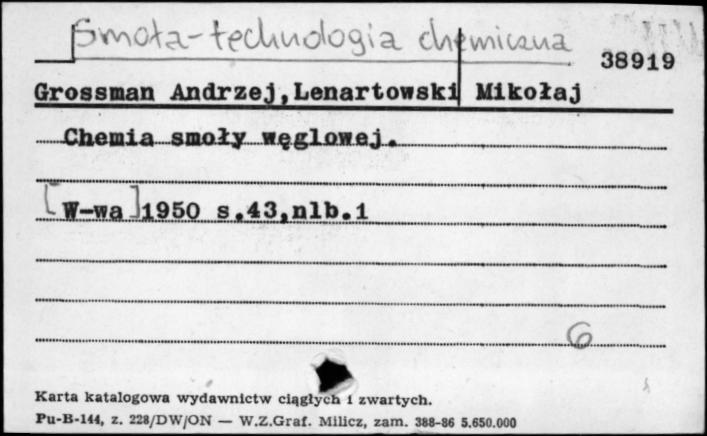 Smoła - technologia chemiczna
38919
Grossman Andrzej, Lenartowski Mikołaj
Chemia smoły węglowej.
[W-wa] 1950 s.43, nlb.1
6
Karta katalogowa wydawnictw ciągłych i zwartych.
Pu-B-144, z. 228/DW/ON — W.Z.Graf. Milicz, zam. 388-86 5.650.000